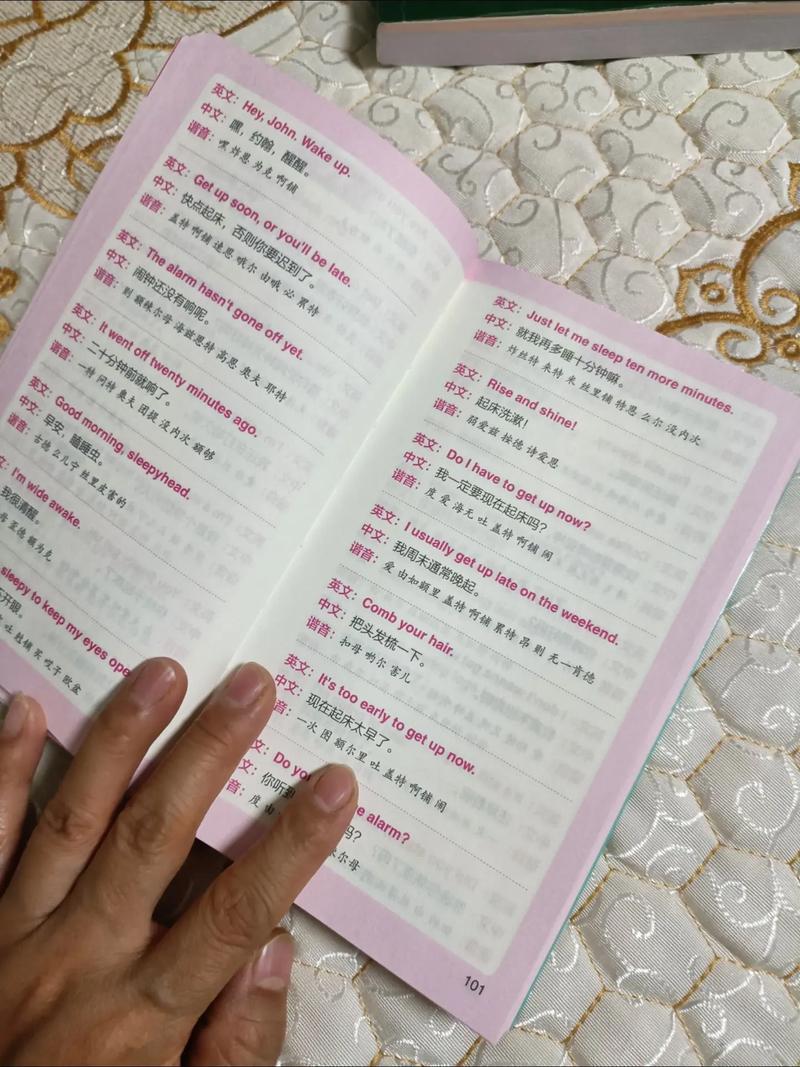 英文：Hey, John. Wake up.
中文：嘿，约翰，醒醒。
谐音：嘿 炸恩 为克 啊铺
英文：Get up soon, or you'll be late.
中文：快点起床，否则你要迟到了。
谐音：盖特 啊铺 逮恩 哦尔 由哦 必 累特
英文：The alarm hasn't gone off yet.
中文：闹钟还没有响呢。
谐音：则 额辣尔母 海兹恩特 高恩 奥夫 耶特
英文：It went off twenty minutes ago.
中文：二十分钟前就响了。
谐音：一特 问特 奥夫 团提 没内次 额够
英文：Good morning, sleepyhead.
中文：早安，瞌睡虫。
谐音：古德 么儿宁 丝里皮害的
I'm wide awake.
我很清醒。
至德 额为克
sleepy to keep my eyes ope
开眼。
吐 胜铺 买 哎子 欧盆
英文：Just let me sleep ten more minutes.
中文：就我再多睡十分钟嘛。
谐音：炸丝特 来特 米 丝里铺 特恩 么尔 没内次
英文：Rise and shine!
中文：起床洗漱！
谐音：弱爱兹 按德 诗爱恩
英文：Do I have to get up now?
中文：我一定要现在起床吗？
谐音：度 爱 海无 吐 盖特 啊铺 闹
英文：I usually get up late on the weekend.
中文：我周末通常晚起。
谐音：爱 由如额里 盖特 啊铺 累特 昂 则 无一肯德
英文：Comb your hair.
中文：把头发梳一下。
谐音：扣母 哟尔 害儿
英文：It's too early to get up now.
中文：现在起床太早了。
谐音：一次 图 额尔里 吐 盖特 啊铺 闹
文：Do you e alarm?
文：你听到 吗？
音：度 由 辣尔母
101